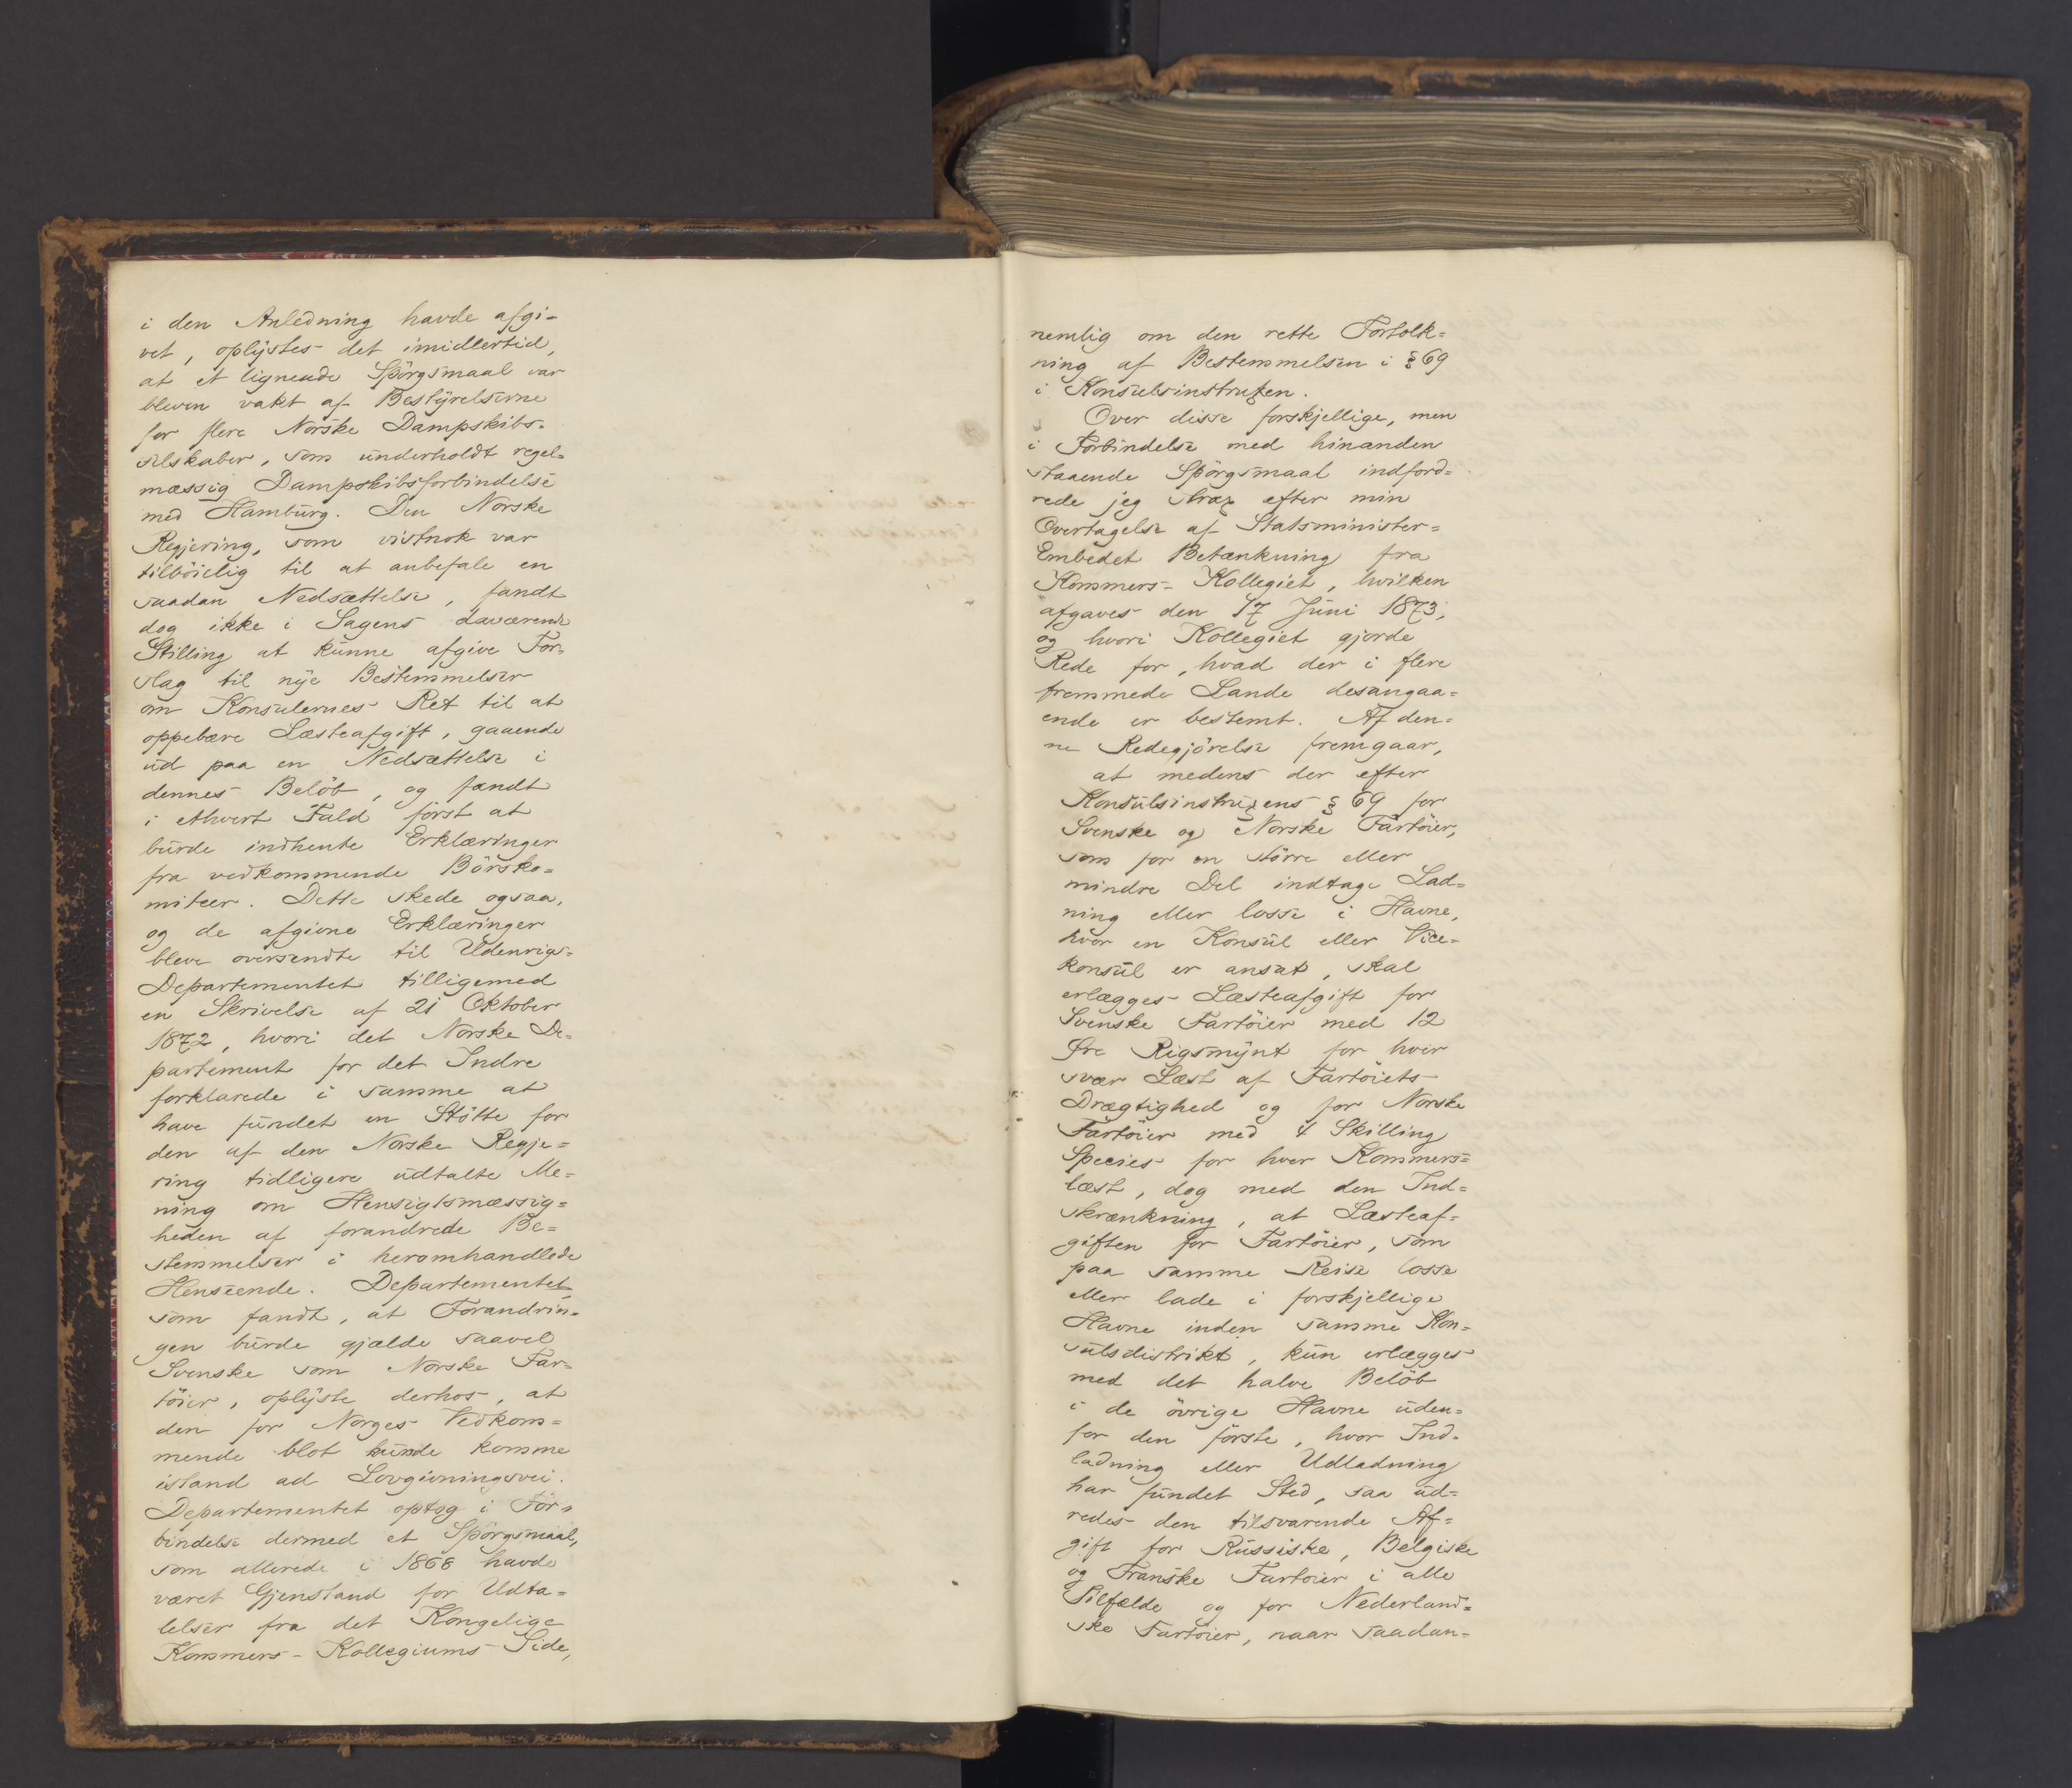 i den Anledning havde afgi=
vet, oplystes det imidlertid,
at et lignende Spörgsmaal var
bleven vakt af Bestyrelserne
for flere Norske Dampskibs=
selskaber, som underholdt regel=
mæssig Dampskibsforbindelse
med Hamburg. Den Norske
Regjering, som vistnok var
tilböielig til at anbefale en
saadan Nedsættelse, fandt
dog ikke i Sagens daværende
Stilling at kunne afgive For=
slag til nye Bestemmelser
om Konsulernes Ret til at
oppebære Læsteafgift, gaaende
ud paa en Nedsættelse i
dennes Belöb, og fandt
i ethvert Fald först at
burde indhente Erklæringer
fra vedkommende Börsko=
miteer. Dette skede ogsaa,
og de afgivne Erklæringer
bleve oversendte til Udenrigs=
Departementet tilligemed
en Skrivelse af 21 Oktober
1872, hvori det Norske De=
partement for det Indre
forklarede i samme at
have fundet en Stötte for
den af den Norske Regje=
ring tidligere udtalte Me=
ning om Hensigtsmæssig=
heden af forandrede Be=
stemmelser i heromhandlede
Henseende. Departementet,
som fandt, at Forandrin=
gen burde gjælde saavel
Svenske som Norske Far=
töier, oplyste derhos, at
den for Norges Vedkom=
mende blot kunde komme
istand ad Lovgivningsvei.
Departementet optog i For=
bindelse dermed et Spörgsmaal,
som allerede i 1868 havde
været Gjenstand for Udta=
lelser fra det Kongelige
Kommers-Kollegiums Side,
nemlig om den rette Fortolk=
ning af Bestemmelsen i § 69
i Konsulsinstruxen.
Over disse forskjellige, men
i Forbindelse med hinanden
staaende Spörgsmaal indford=
rede jeg strax efter min
Overtagelse af Statsminister=
Embedet Betænkning fra
Kommers-Kollegiet, hvilken
afgaves den 17 Juni 1873,
og hvori Kollegiet gjorde
Rede for, hvad der i flere
fremmede Lande desangaa=
ende er bestemt. Af den=
ne Redegjörelse fremgaar,
at medens der efter
Konsulsinstruxens § 69 for
Svenske og Norske Fartöier,
som for en större eller
mindre Del indtage Lad=
ning eller losse i Havne,
hvor en Konsul eller Vice=
konsul er ansat, skal
erlægges Læsteafgift for
Svenske Fartöier med 12
Øre Rigsmynt for hver
svær Læst af Fartöiets
Drægtighed og for Norske
Fartöier med 4 Skilling
Species for hver Kommers=
læst, dog med den Ind=
skrænkning, at Læsteaf=
giften for Fartöier, som
paa samme Reise losse
eller lade i forskjellige
Havne inden samme Kon=
sulsdistrikt, kun erlægges
med det halve Belöb
i de övrige Havne uden=
for den förste, hvor Ind=
ladning eller Udladning
har fundet Sted, saa ud=
redes den tilsvarende Af=
gift for Russiske, Belgiske
og Franske Fartöier i alle
Tilfælde og for Nederland=
ske Fartöier, naar saadan=